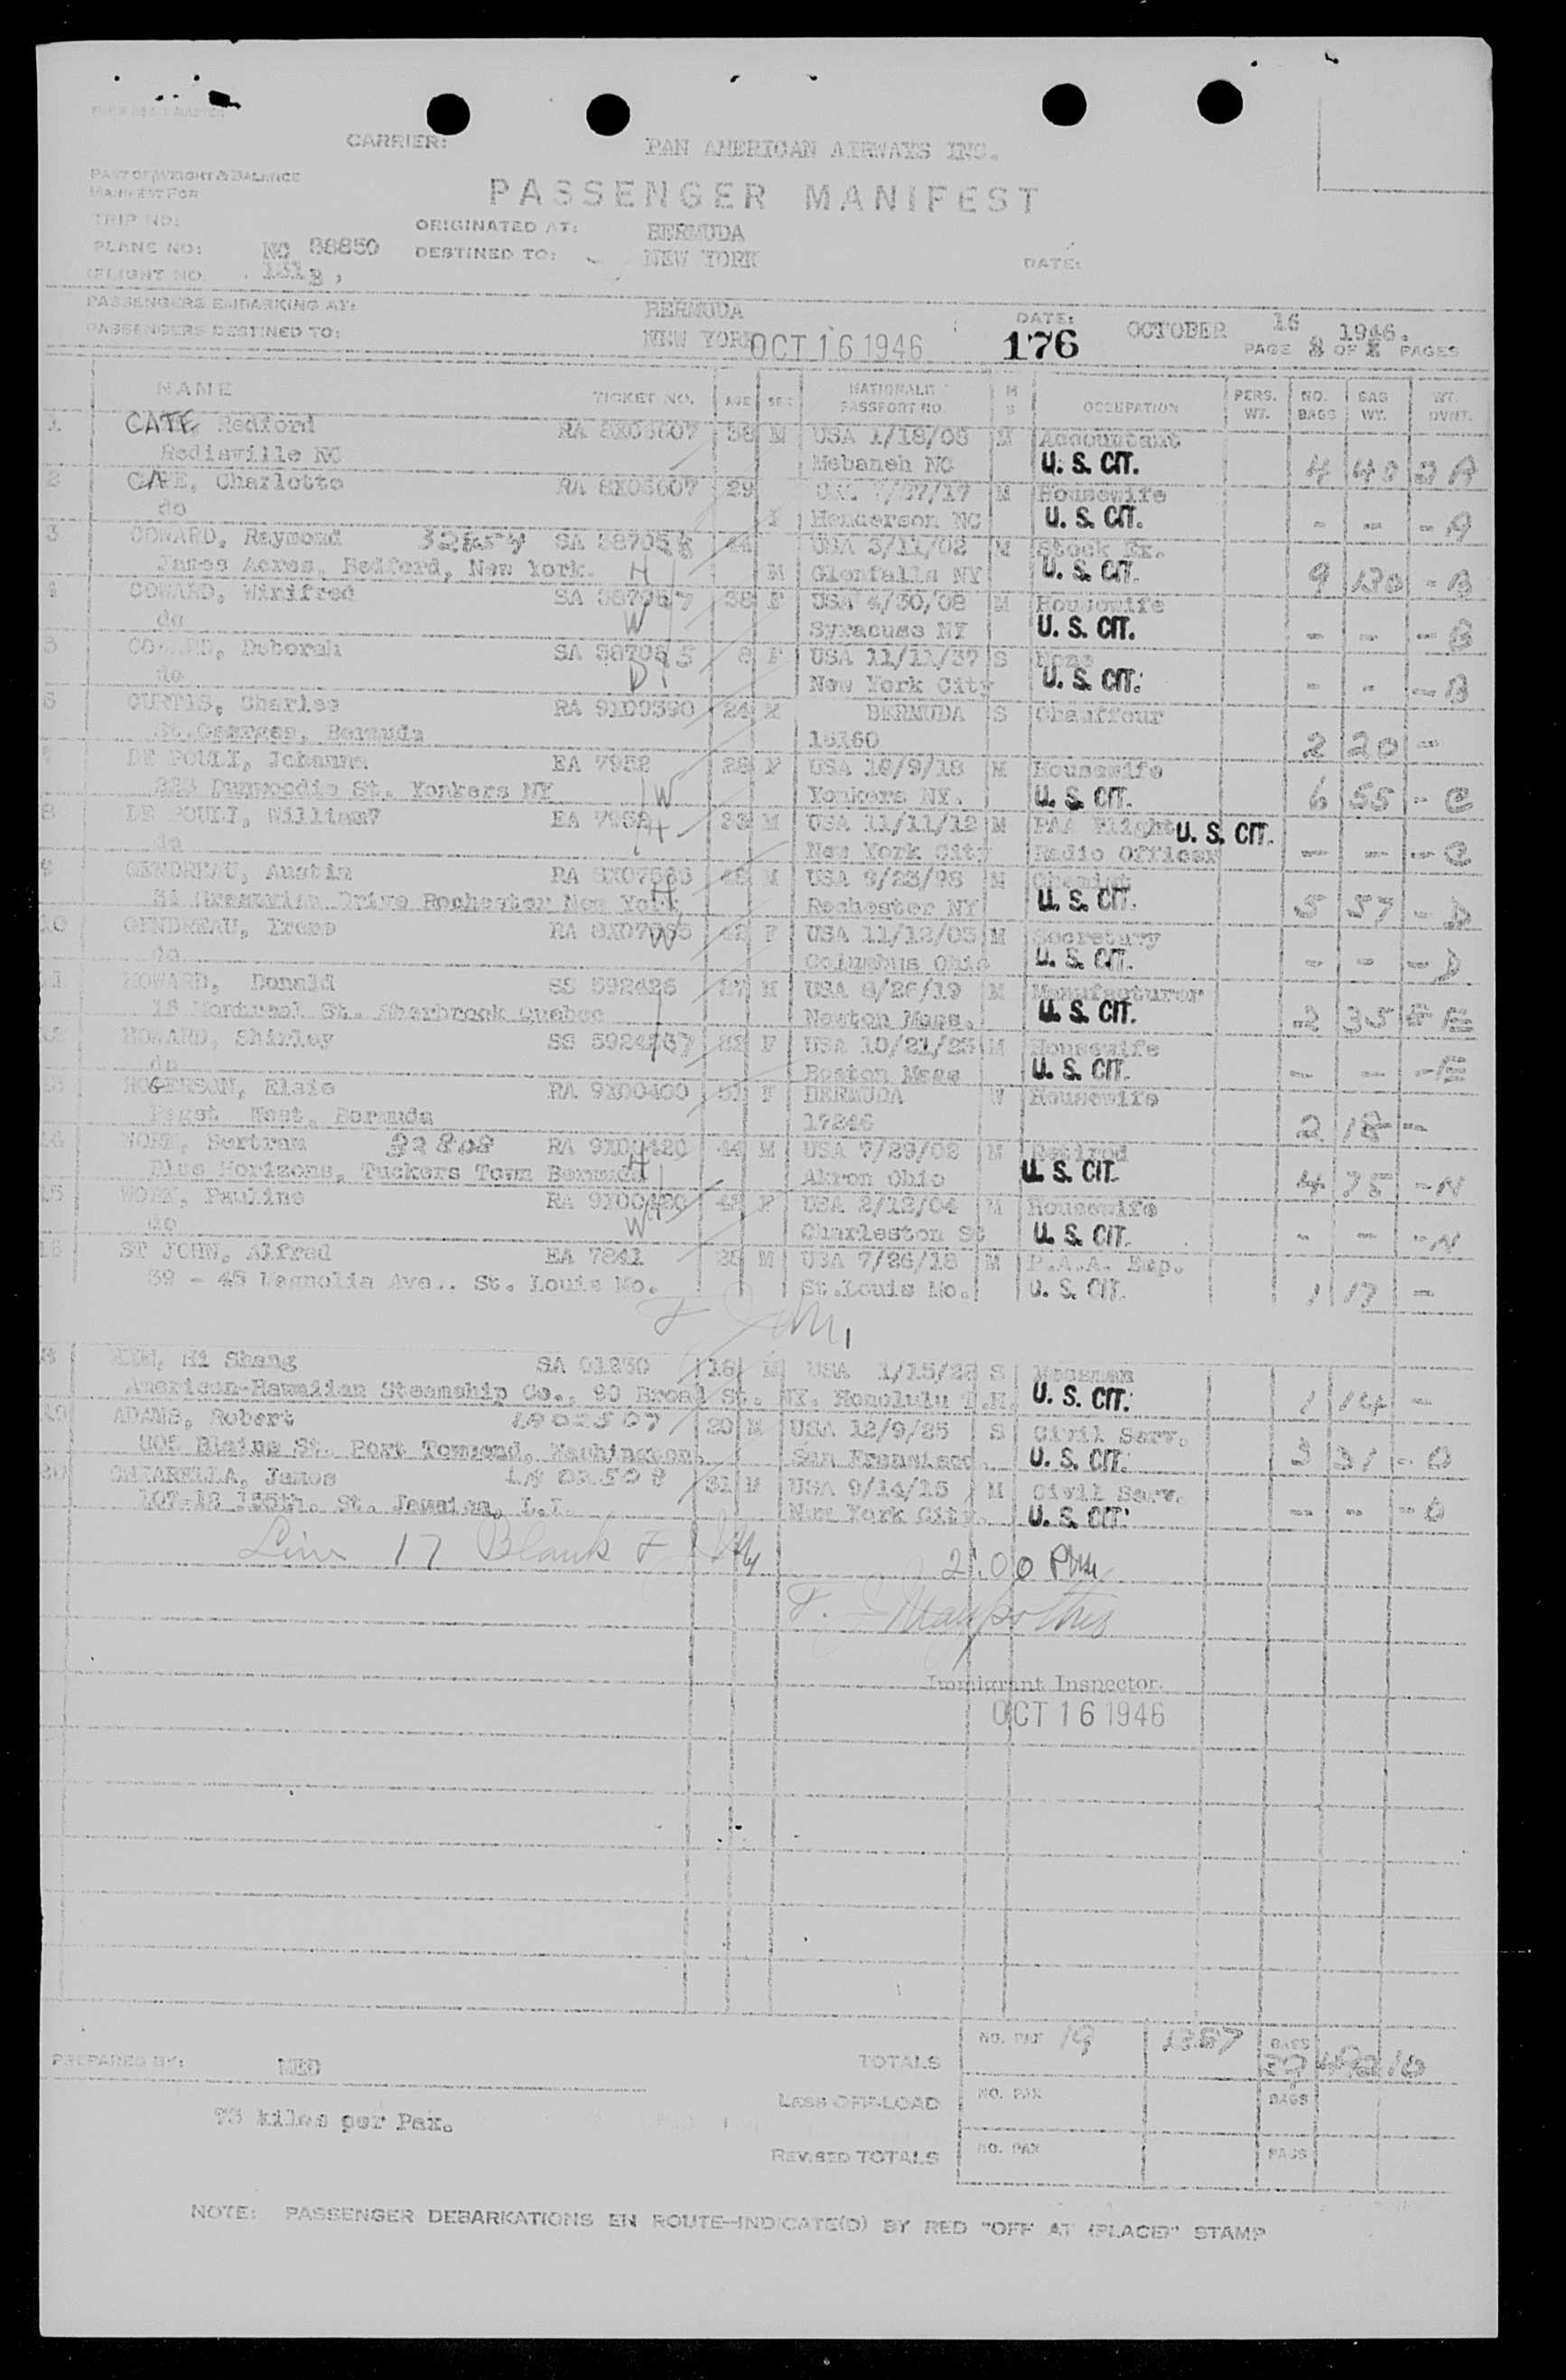 CARRIER: PAN AMERICAN AIRWAYS INC.
PART OF WEIGHT & BALANCE
MANIFEST FOR
PASSENGER MANIFEST
TRIP NO: ORIGINATED AT: BERMUDA
PLANE NO: NC 88850 DESTINED TO: NEW YORK DATE:
FLIGHT NO. 131B
PASSENGERS EMBARKING AT: BERMUDA DATE: OCTOBER 16 1946.
PASSENGERS DESTINED TO: NEW YORK OCT 16 1946 176 PAGE OF PAGES
NAME TICKET NO. AGE SEX NATIONALITY PASSPORT NO. M S OCCUPATION PERS. WT. NO. BAGS BAG WT. WT. OVNT.
1 CATE, Redford RA 8X03607 38 M USA 1/18/08 M Accountant
NC Mebaneh NC U. S. CIT. 4 40
2 CATE, Charlotte RA 8X03607 29 M Housewife
do F Henderson NC U. S. CIT. - - -
3 COWARD, Raymond SA 44 USA 3/11/02 M Stock Ex.
James Acres, Bedford, New York. H M Glenfalls NY U. S. CIT. 9 130 - B
4 COWARD, Winifred SA 38 F USA 4/30/08 M Housewife
do W Syracuse NY U. S. CIT. - - - B
5 COWARD, Deborah SA 8 F USA 11/11/37 S None
do D New York City U. S. CIT. - - - B
6 CURTIS, Charles RA 9X00390 24 M BERMUDA S Chauffeur
St.Georges, Bermuda 15160 2 20 -
7 DE POULI, Johanna EA 7952 28 F USA 10/9/18 M Housewife
St. Yonkers NY W Yonkers NY. U. S. CIT. 6 55 - C
8 DE POULI, William EA 7952 33 M USA 11/11/12 M PAA Flight U. S. CIT.
do H New York City Radio Officer - - - C
9 GENDREAU, Austin RA 8X07665 48 M USA 9/23/98 M Chemist
Drive Rochester New York H Rochester NY U. S. CIT. 5 57 - D
10 GENDREAU, Irene RA 8X07665 F USA 11/12/03 M Secretary
do W Columbus Ohio U. S. CIT. - - - D
11 HOWARD, Donald SS 592426 27 M USA 8/26/19 M Manufacturer
St. Sherbrook Quebec Newton Mass. U. S. CIT. 2 35 - E
12 HOWARD, Shirley SS F USA 10/21/23 M Housewife
do Boston Mass U. S. CIT. - - - E
Elsie RA 9X00400 51 F BERMUDA W Housewife
Paget West, Bermuda 17246 2 18 -
14 WORK, Bertram 32808 RA 9X00420 44 M USA 7/29/02 M Retired
Blue Horizons, Tuckers Town Bermuda H Akron Ohio U. S. CIT. 4 75 - N
15 WORK, Pauline RA 9X00420 42 F USA 2/12/04 M Housewife
do W Charleston SC U. S. CIT. - - - N
16 ST JOHN, Alfred EA 7841 28 M USA 7/26/18 M P.A.A. Emp.
39 - 45 Magnolia Ave.. St. Louis Mo. St.Louis Mo. U. S. CIT. 1 17 -
Hi Shang SA 01230 18 M USA 1/15/28 S Messman
American-Hawaiian Steamship Co., 90 Broad St. NY. Honolulu T.H. U. S. CIT. 1 14 -
19 ADAMS, Robert 20 M USA 12/9/25 S Civil Serv.
Blaine St. Port Townsend, Washington. San Francisco. U. S. CIT. 3 31 - O
20 CHIARELLA, James 31 M USA 9/14/15 M Civil Serv.
107-12 St. Jamaica, L.I. New York City. U. S. CIT. - - - O
Line 17 Blank 2:00 PM
Immigrant Inspector.
OCT 16 1946
PREPARED BY: TOTALS NO. PAX 19 1387 BAGS
LESS OFF-LOAD NO. PAX BAGS
73 kilos per Pax.
REVISED TOTALS NO. PAX BAGS
NOTE: PASSENGER DEBARKATIONS EN ROUTE-INDICATE(D) BY RED "OFF AT (PLACE)" STAMP